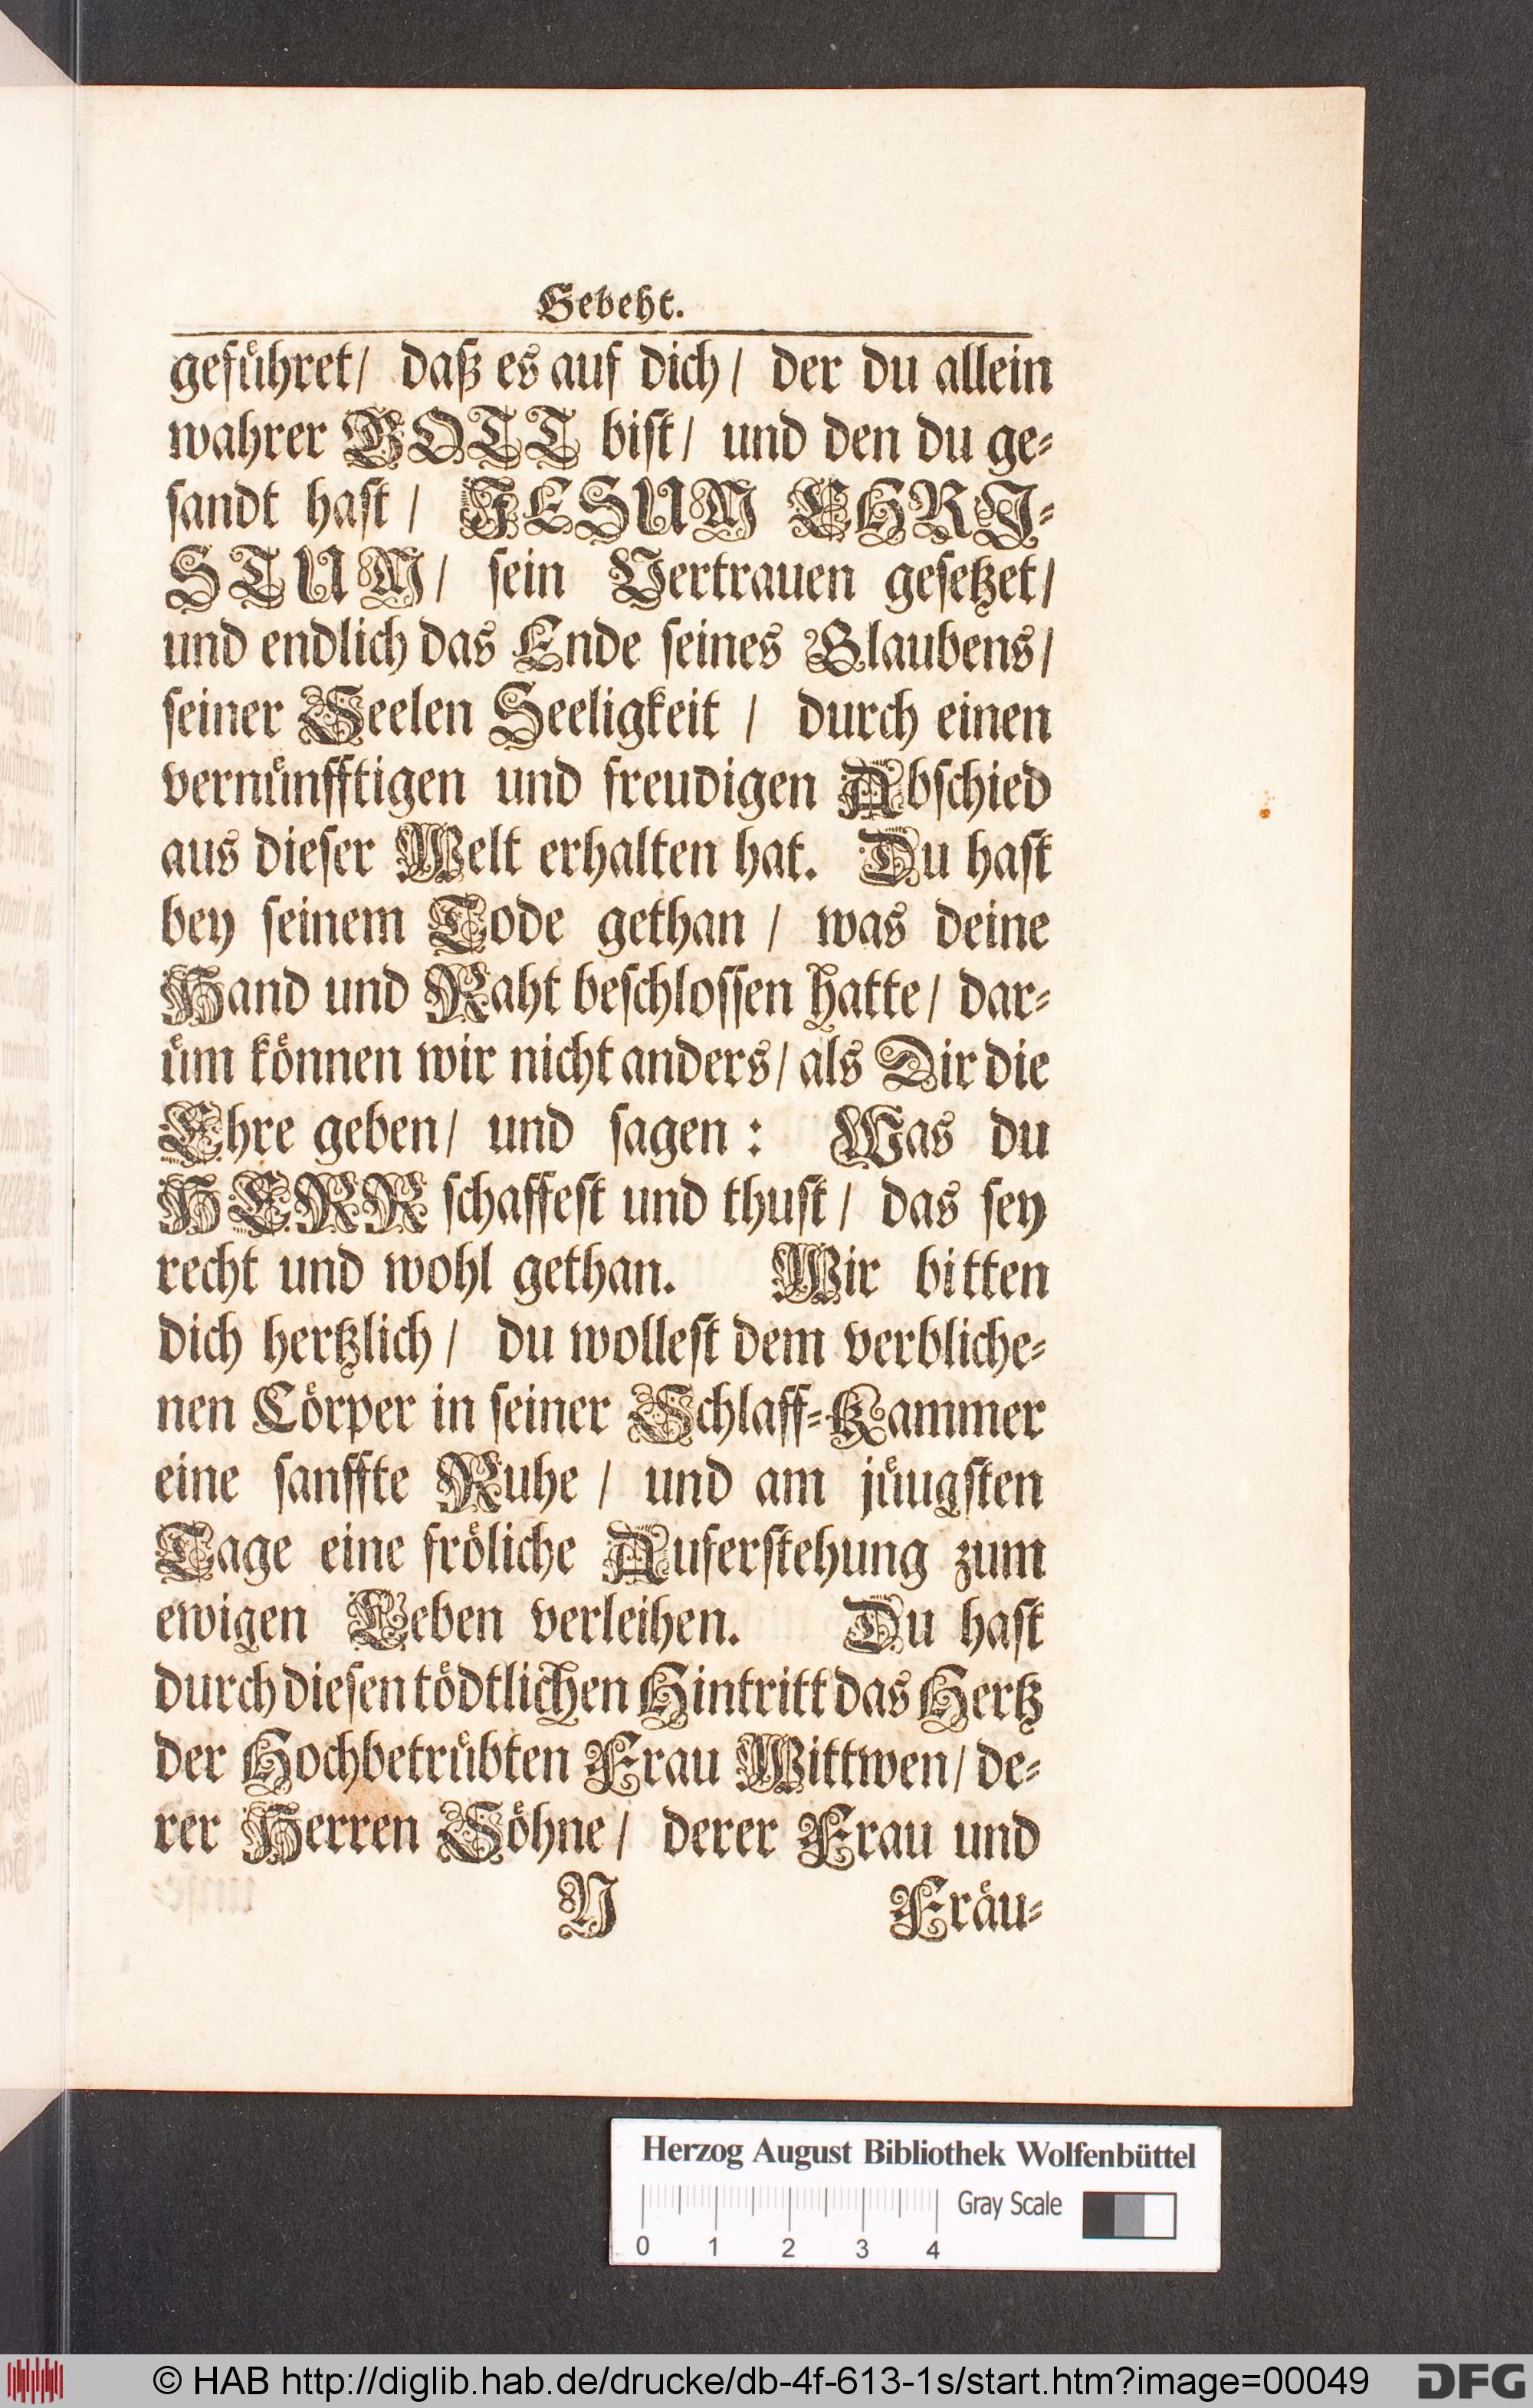 Gebeht.
gefuͤhret/ daß es auf dich/ der du allein
wahrer GOTT bist/ und den du ge⸗
sandt hast/ JESUM CHRJ⸗
STUM/ sein Vertrauen gesetzet/
und endlich das Ende seines Glaubens/
seiner Seelen Seeligkeit/ durch einen
vernuͤnfftigen und freudigen Abschied
aus dieser Welt erhalten hat. Du hast
bey seinem Tode gethan/ was deine
Hand und Raht beschlossen hatte/ dar⸗
uͤm koͤnnen wir nicht anders/ als Dir die
Ehre geben/ und sagen: Was du
HERR schaffest und thust/ das sey
recht und wohl gethan. Wir bitten
dich hertzlich/ du wollest dem verbliche⸗
nen Coͤrper in seiner Schlaff⸗Kammer
eine sanffte Ruhe/ und am juͤugsten
Tage eine froͤliche Auferstehung zum
ewigen Leben verleihen. Du hast
durch diesen toͤdtlichen Hintritt das Hertz
der Hochbetruͤbten Frau Wittwen/ de⸗
rer Herren Soͤhne/ derer Frau und
Y Fraͤu⸗
Herzog August Bibliothek Wolfenbüttel
Gray Scale
0 1 2 3 4
© HAB http://diglib.hab.de/drucke/db-4f-613-1s/start.htm?image=00049 DFG